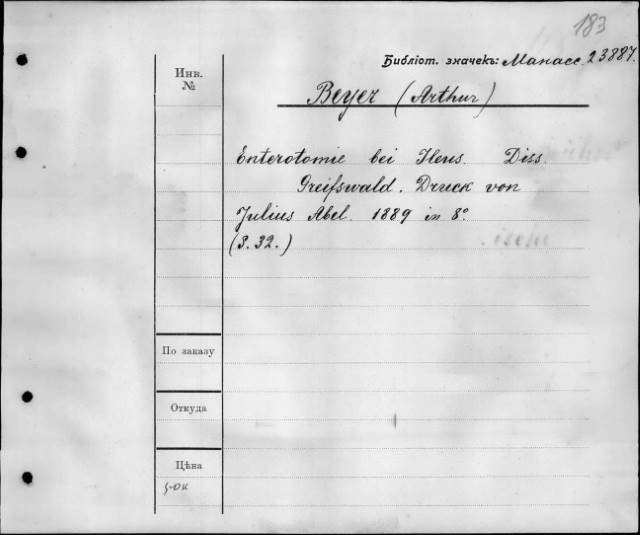 183
Библіот. значекъ: Манасс. 23887.
Инв.
№
Beyer (Arthur)
Enterotomie bei Ileus. Diss.
Greifswald. Druck von
Julius Abel. 1889 in 8°
(S. 32.)
По заказу
Откуда
Цѣна